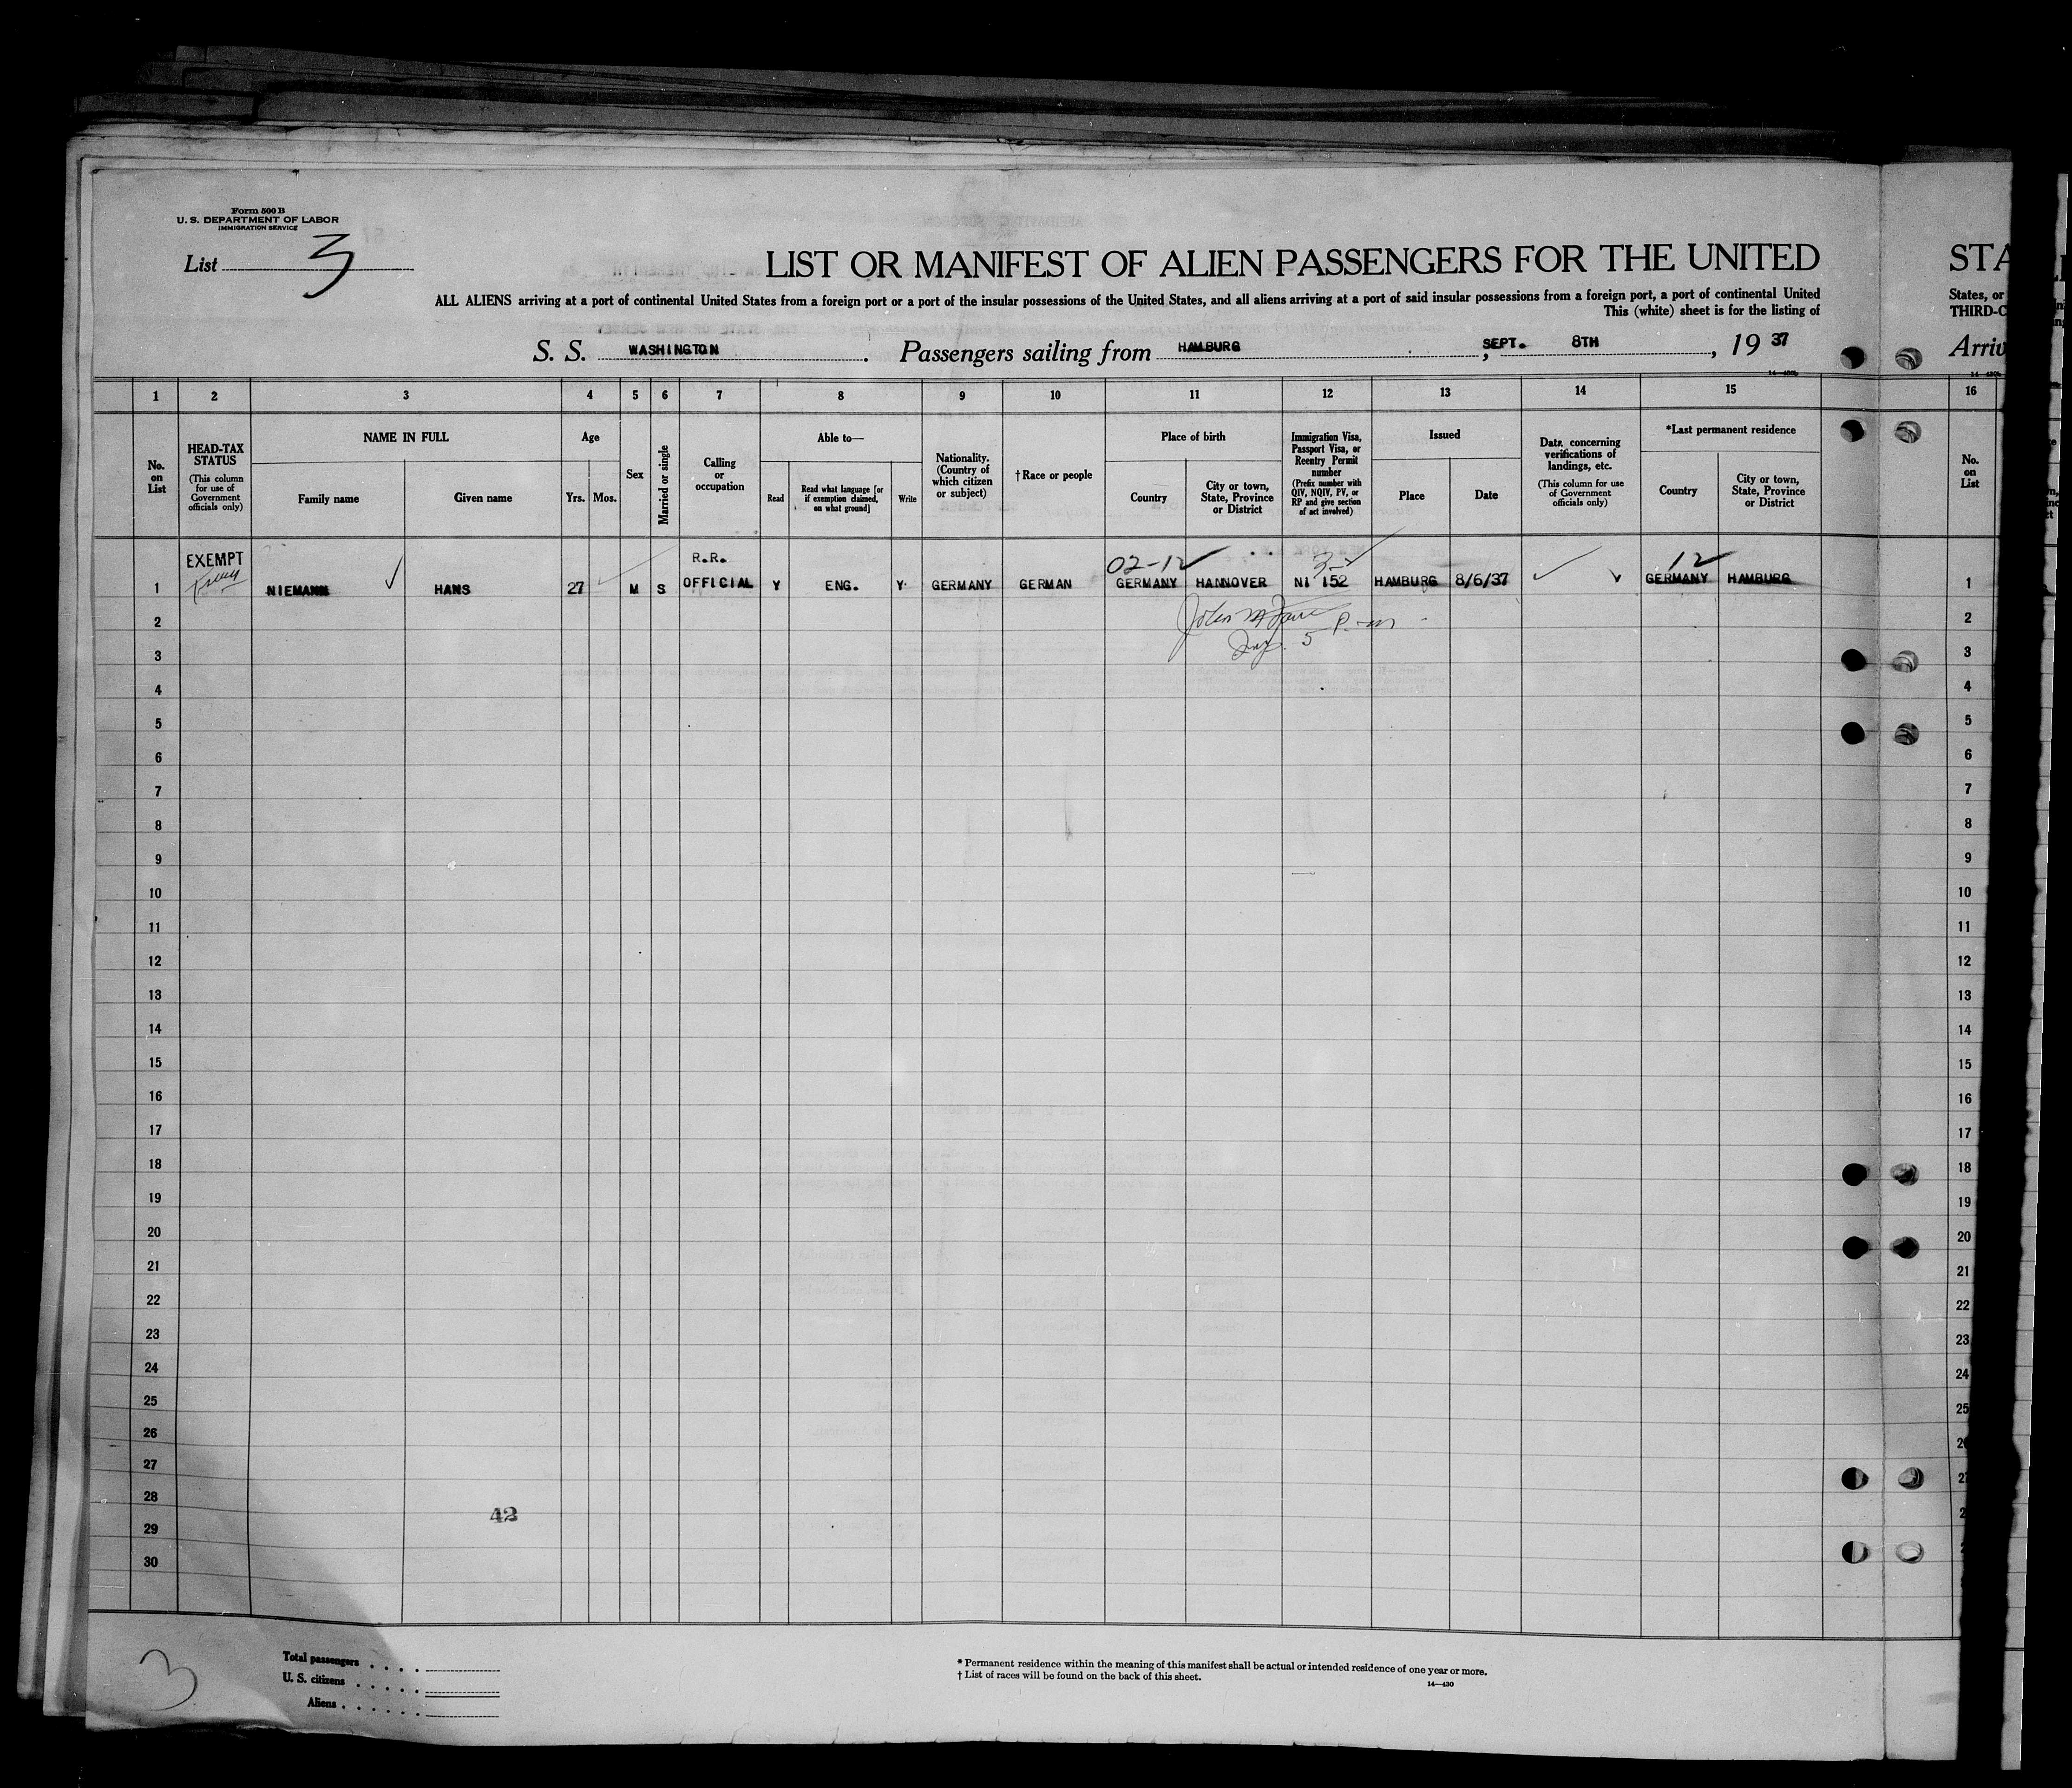 Form 500 B
U. S. DEPARTMENT OF LABOR
IMMIGRATION SERVICE
List 3
LIST OR MANIFEST OF ALIEN PASSENGERS FOR THE UNITED
ALL ALIENS arriving at a port of continental United States from a foreign port or a port of the insular possessions of the United States, and all aliens arriving at a port of said insular possessions from a foreign port, a port of continental United
This (white) sheet is for the listing of
S. S. WASHINGTON. Passengers sailing from HAMBURG, SEPT. 8TH, 19 37
STA
States, or
THIRD-C
Arriv
1 2 3 4 5 6 7 8 9 10 11 12 13 14 15 16
No. on List
HEAD-TAX STATUS
(This column for use of Government officials only)
NAME IN FULL
Family name
Given name
Age
Yrs.
Mos.
Sex
Married or single
Calling or occupation
Able to—
Read
Read what language [or if exemption claimed, on what ground]
Write
Nationality. (Country of which citizen or subject)
† Race or people
Place of birth
Country
City or town, State, Province or District
Immigration Visa, Passport Visa, or Reentry Permit number
(Prefix number with QIV, NQIV, PV, or RP and give section of act involved)
Issued
Place
Date
Data concerning verifications of landings, etc.
(This column for use of Government officials only)
*Last permanent residence
Country
City or town, State, Province or District
No. on List
EXEMPT R.R. 02-12 12
1 NIEMANN HANS 27 M S OFFICIAL Y ENG. Y GERMANY GERMAN GERMANY HANNOVER NI 152 HAMBURG 8/6/37 GERMANY HAMBURG 1
2 2
3 3
4 4
5 5
6 6
7 7
8 8
9 9
10 10
11 11
12 12
13 13
14 14
15 15
16 16
17 17
18 18
19 19
20 20
21 21
22 22
23 23
24 24
25 25
26
27
28
42
29
30
3
Total passengers
U. S. citizens
Aliens
* Permanent residence within the meaning of this manifest shall be actual or intended residence of one year or more.
† List of races will be found on the back of this sheet.
14—430